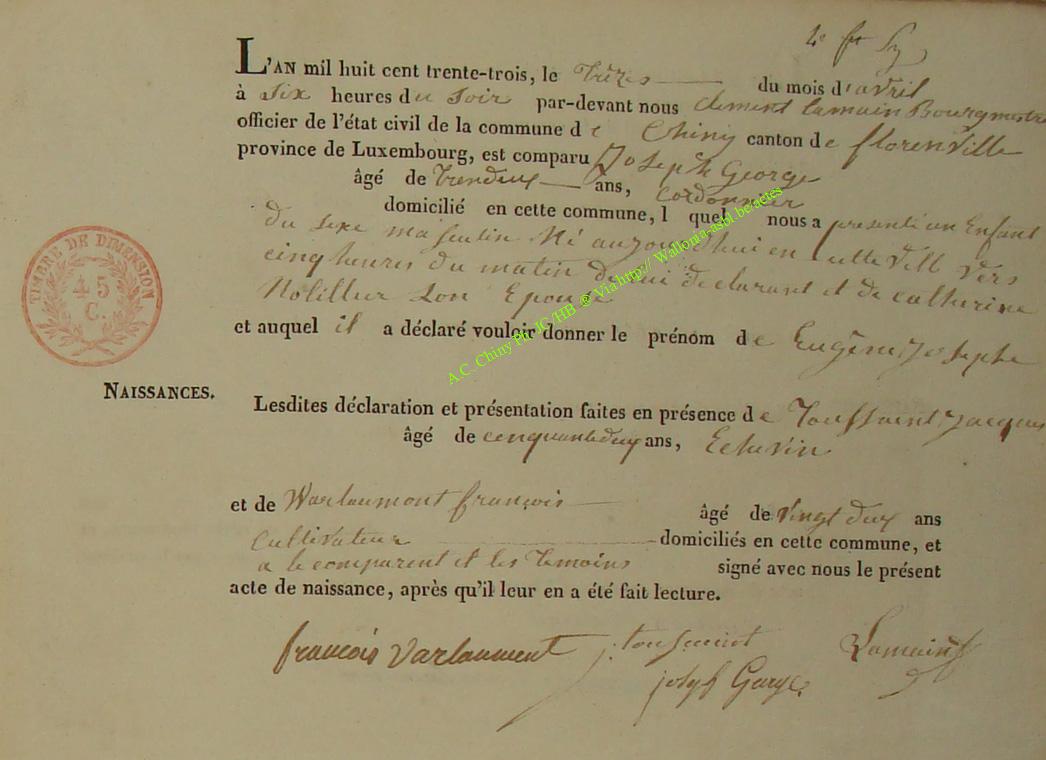 L'AN mil huit cent trente-trois, le treze du mois d'avril
à six heures du soir par-devant nous Clement Lamain Bourgmestre
officier de l'état civil de la commune de Chiny canton de florenville
province de Luxembourg, est comparu Joseph George
âgé de trendeux ans, Cordonnier
domicilié en cette commune, l quel nous a presenté un Enfant
du sexe masculin Né aujourdhui en cette ville vers
cinq heures du matin de lui declarant et de catherine
son Epouse
et auquel il a déclaré vouloir donner le prénom de Eugêne Josephe
NAISSANCES.
Lesdites déclaration et présentation faites en présence de Toussaint Jacques
âgé de cinquantedeux ans, Echevin
et de Warlaumont françois âgé de vingt deux ans
cultivateur domiciliés en cette commune, et
a le comparent et les temoins signé avec nous le présent
acte de naissance, après qu'il leur en a été fait lecture.
françois Varlaumont j. toussaint Lamain
josph George
TIMBRE DE DIMENSION
45
C.
A.C. Chiny Ph JG /HB @ Via http:// Wallonia-asbl.be/actes